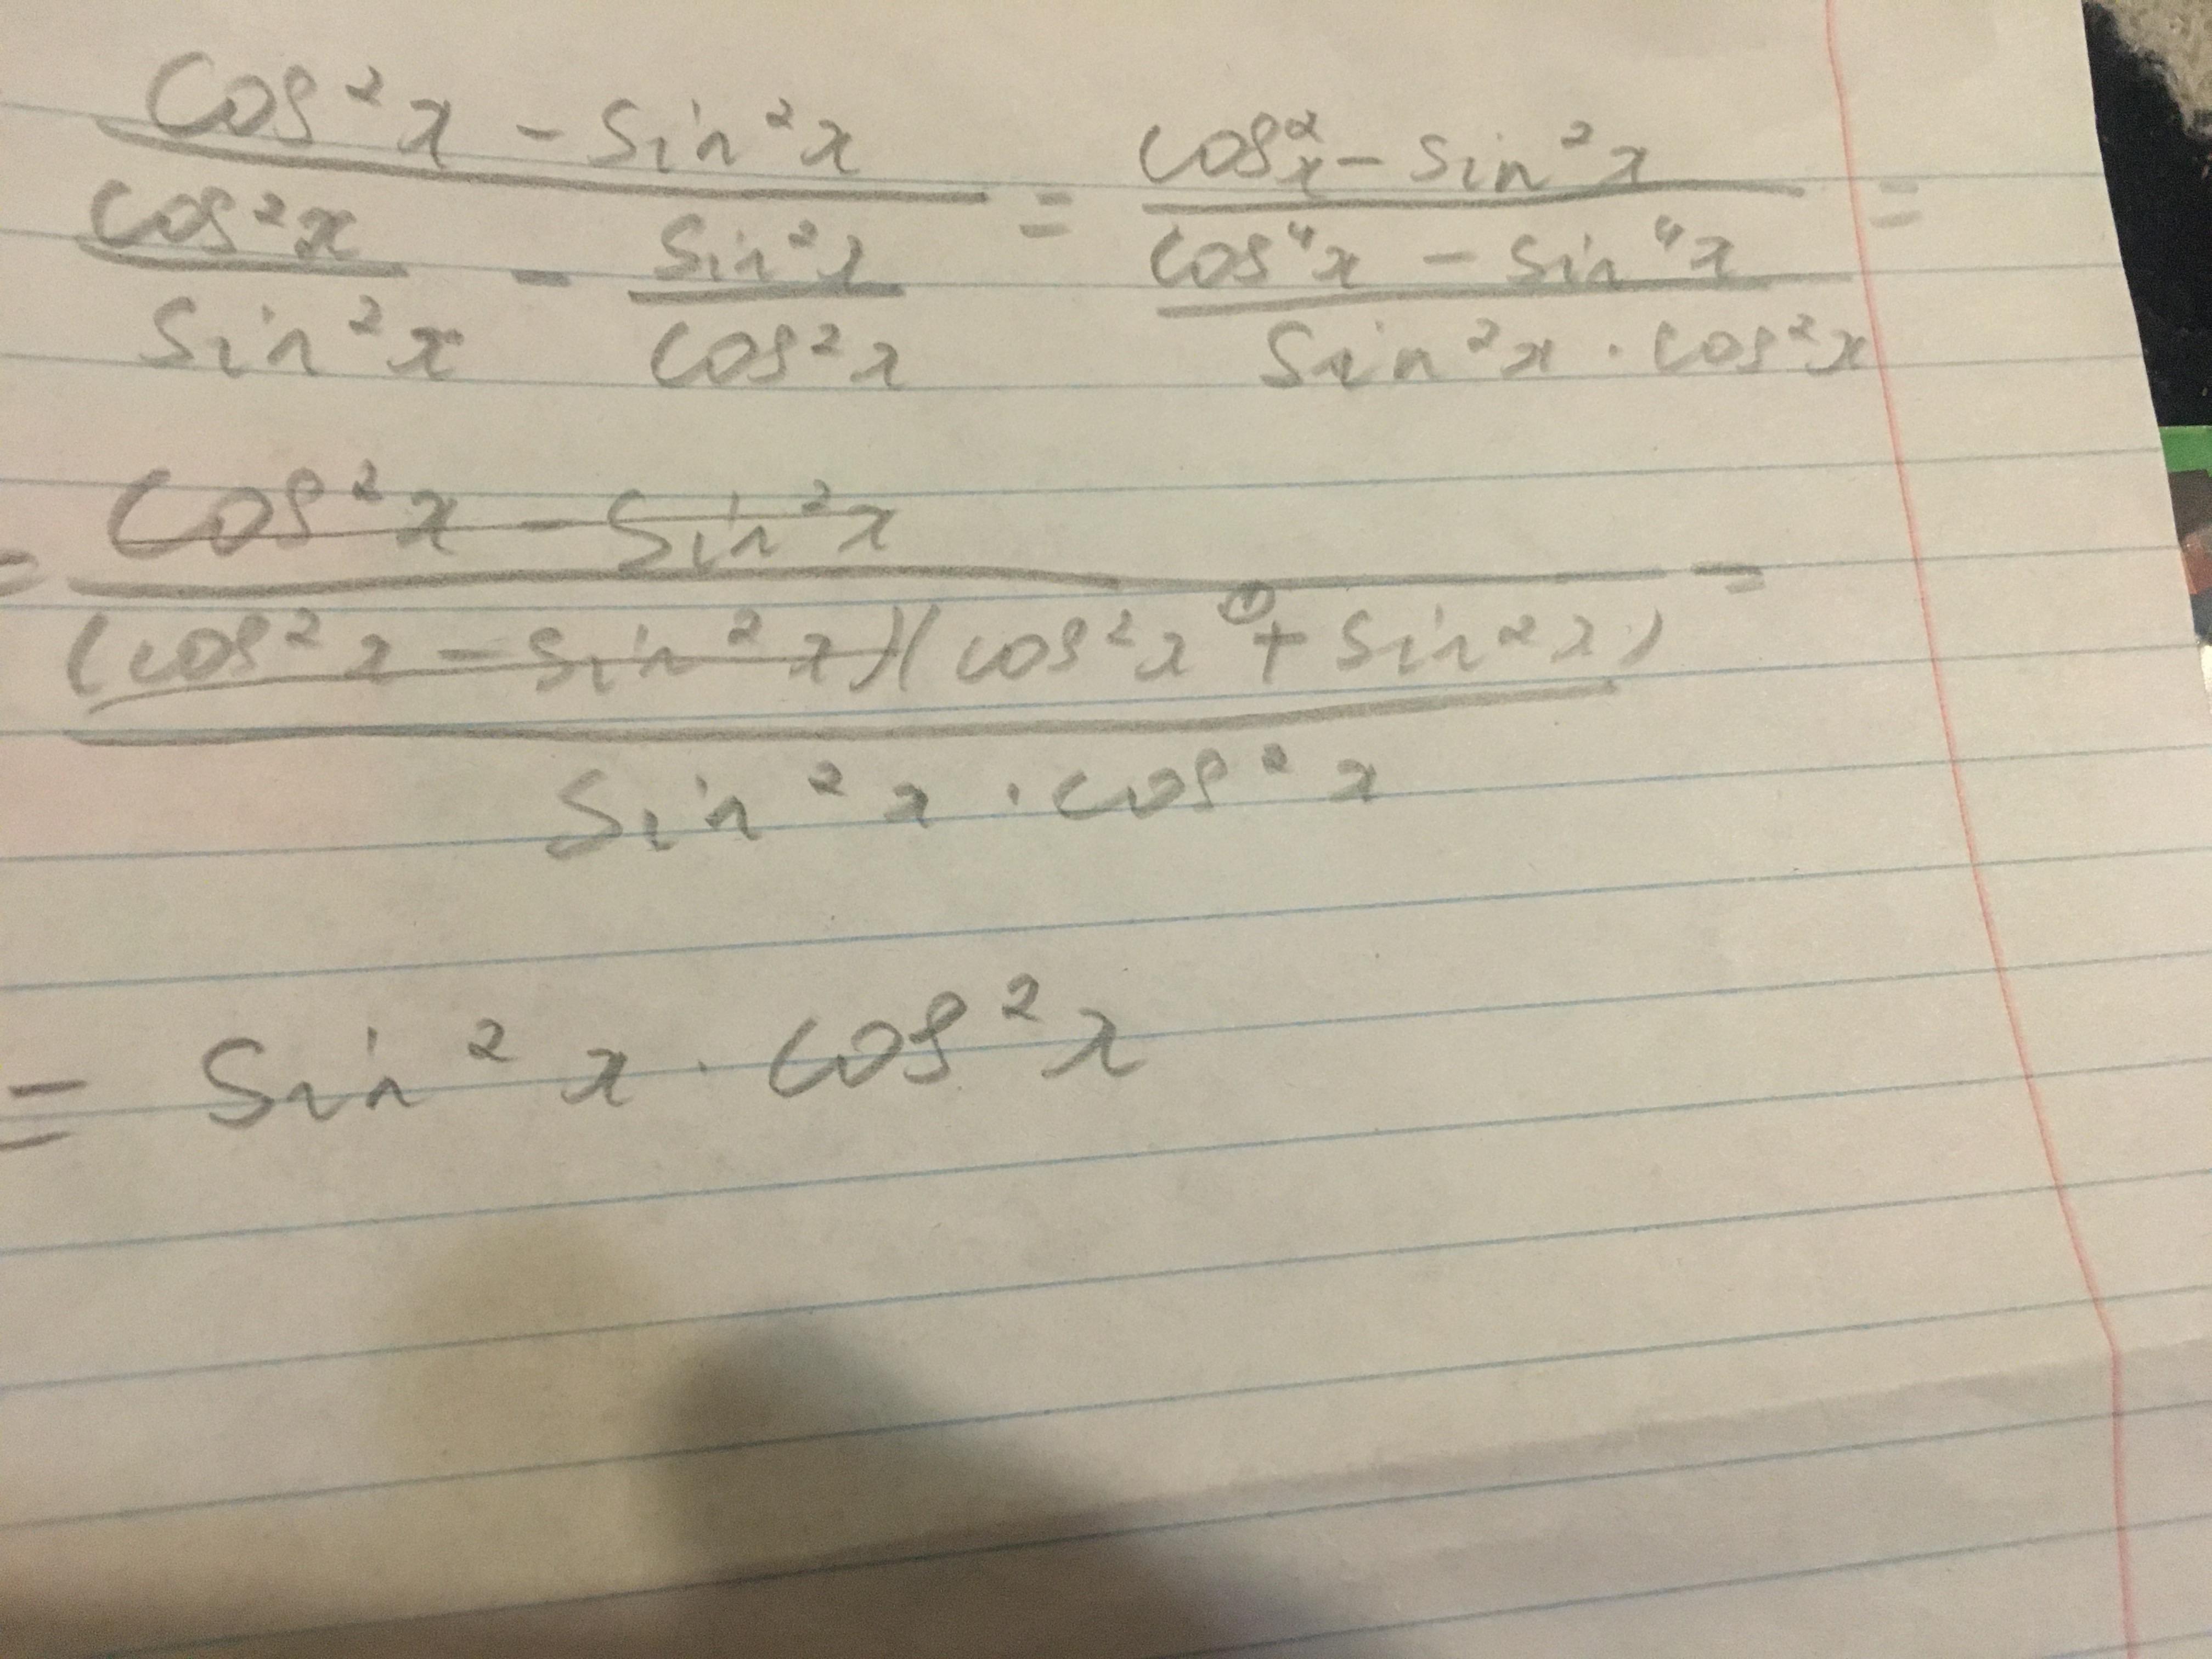 cos²x - sin²x / (cos²x / sin²x - sin²x / cos²x) = cos²x - sin²x / (cos⁴x - sin⁴x / sin²x · cos²x) =
= cos²x - sin²x / ((cos²x - sin²x)(cos²x + sin²x) ① / sin²x · cos²x) =
= sin²x · cos²x